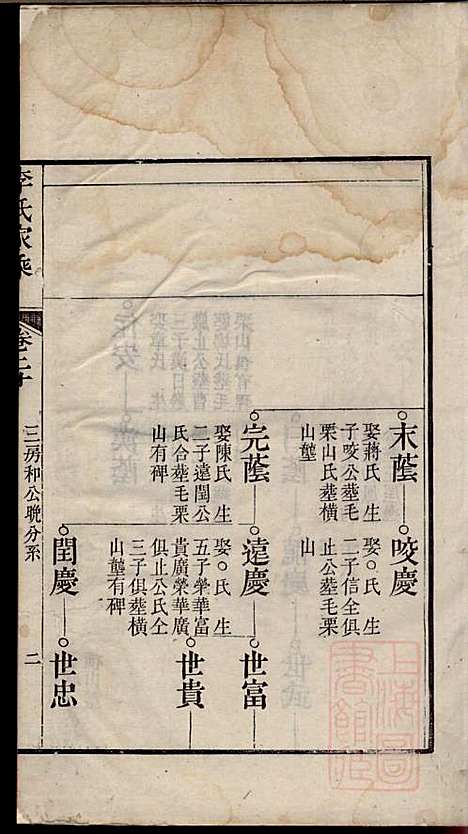 末蔭
娶蔣氏生
子咬公塟毛
栗山氏塟橫
山𡑞
咬慶
娶○氏生
二子信全俱
止公塟毛栗
山
完蔭
娶陳氏生
二子遠閏公
氏合塟毛栗
山有碑
遠慶
娶○氏生
五子榮華富
貴廣榮華廣
俱止公氏仝
三子俱塟橫
山𡑞有碑
世富
世貴
閏慶
世忠
李氏家乘
卷二十
三房和公晚分系
二
上海圖書館藏